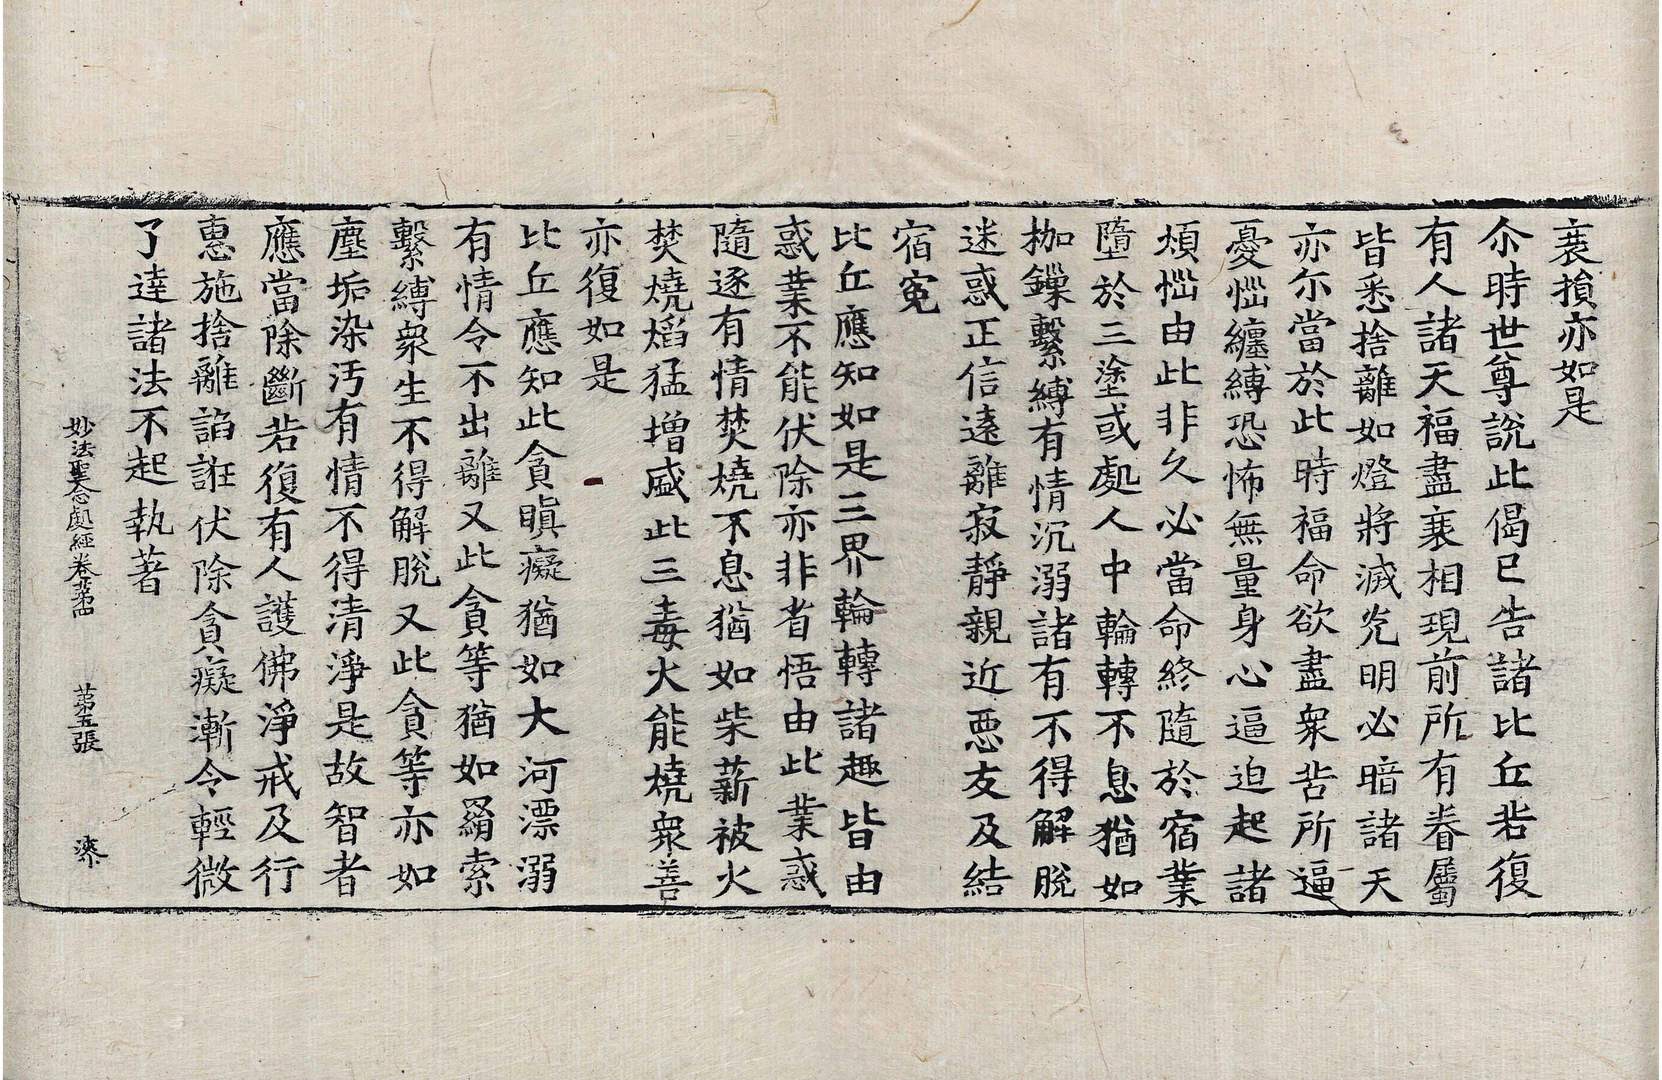 衰損亦如是
尒時世尊說此偈已告諸比丘若復
有人諸天福盡衰相現前所有眷屬
皆悉捨離如燈將滅光明必暗諸天
亦尒當於此時福命欲盡衆苦所逼
憂惱纏縛恐怖無量身心逼迫起諸
煩惱由此非久必當命終隨於宿業
墮於三塗或處人中輪轉不息猶如
枷鏁繫縛有情沉溺諸有不得解脫
迷惑正信遠離寂靜親近惡友及結
宿寃
比丘應知如是三界輪轉諸趣皆由
惑業不能伏除亦非省悟由此業惑
隨逐有情焚燒不息猶如柴薪被火
焚燒焰猛增盛此三毒火能燒衆善
亦復如是
比丘應知此貪瞋癡猶如大河漂溺
有情令不出離又此貪等猶如羂索
繫縛衆生不得解脫又此貪等亦如
塵垢染汚有情不得清淨是故智者
應當除斷若復有人護佛淨戒及行
惠施捨離諂誑伏除貪癡漸令輕微
了達諸法不起執著
妙法聖念處經卷第四 第五張